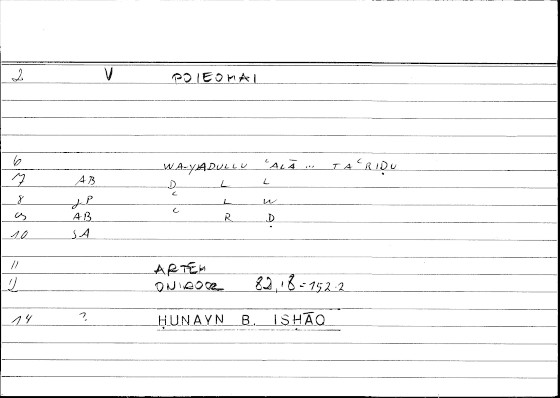 2 V POIEOMAI
6 WA-YADULLU ʿALĀ ... TAʿRIḌU
7 AB D L L
8 JP ʿ L W
9 AB ʿ R Ḍ
10 SA
11 ARTEM
ONIROCR 82,18 = 152.2
14 ? ḤUNAYN B. ISḤĀQ